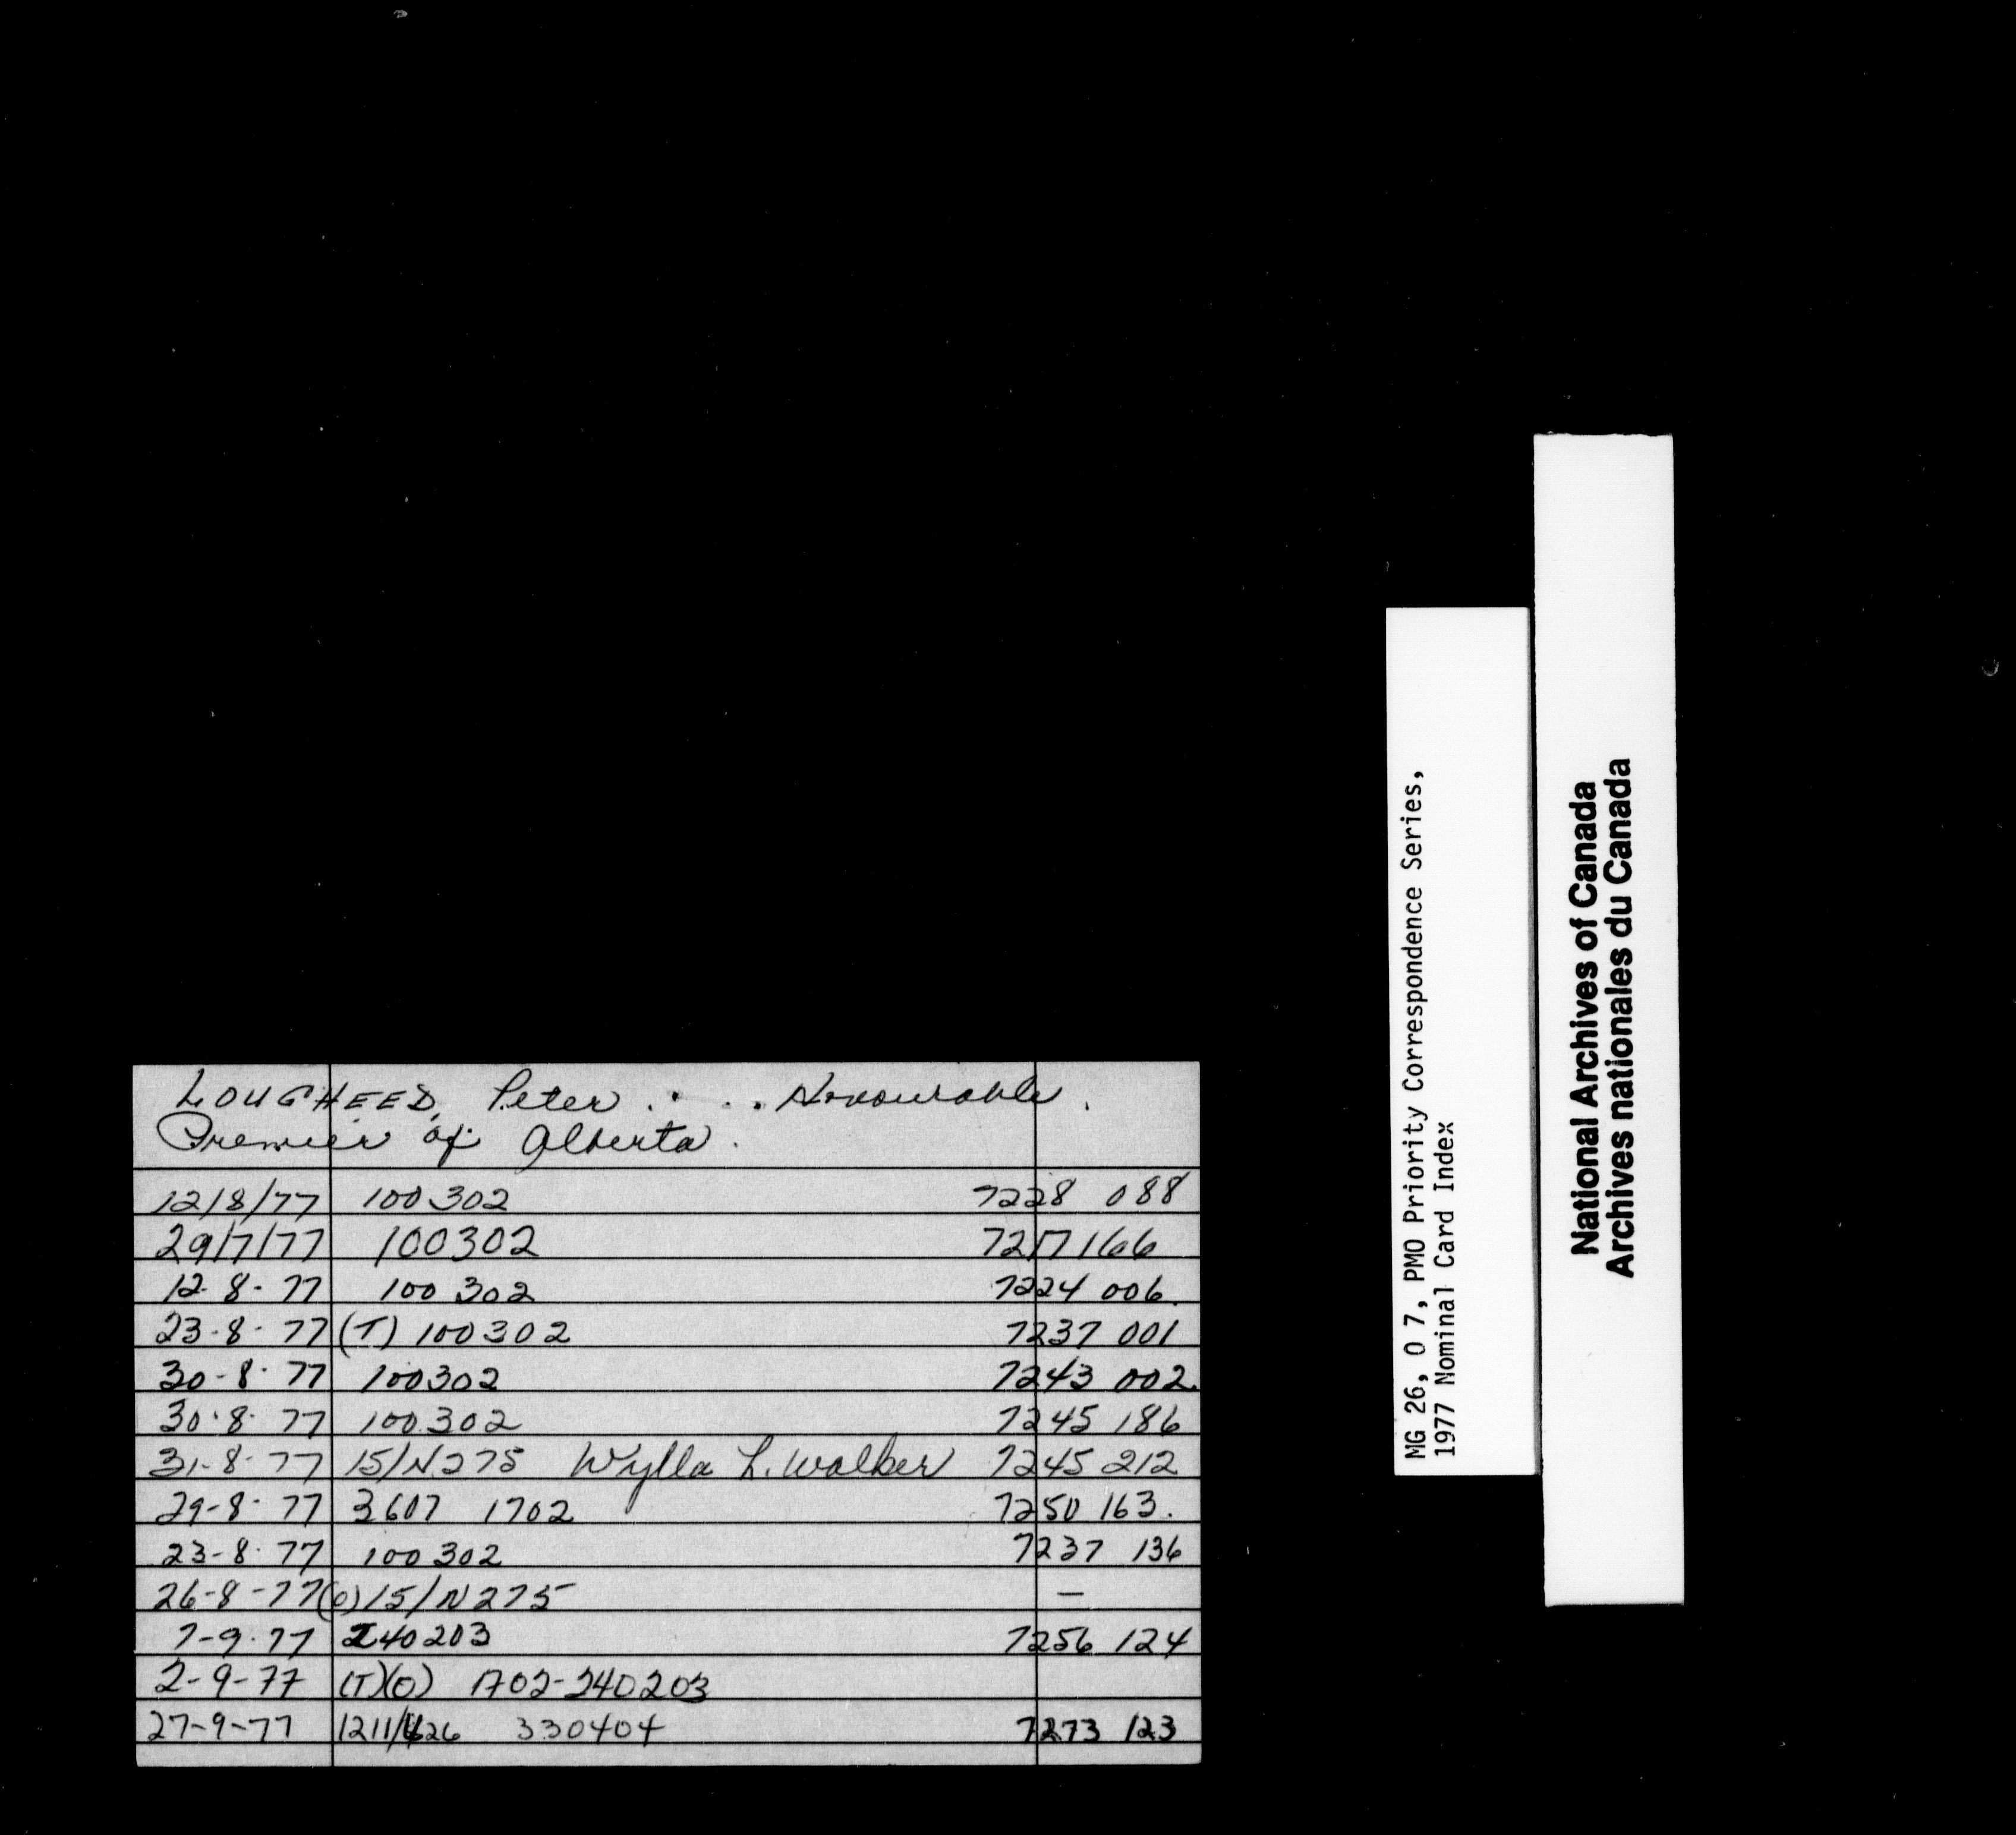 LOUGHEED, Peter . . . Honourable.
Premier of Alberta.
12/8/77 100302 7228 088
29/7/77 100302 7217 166
12.8-77 100 302 7224 006.
23-8-77 (T) 100302 7237 001
30-8-77 100302 7243 002.
30.8.77 100.302 7245 186
31-8-77 15/N275 Wylla L. Walker 7245 212
29-8-77 3607 1702 7250 163.
23-8-77 100 302 7237 136
26-8-77 (O) 15/N275 —
7-9-77 240203 7256 124
2-9-77 (T)(O) 1702-240203
27-9-77 1211/ 330404 7273 123
MG 26, O 7, PMO Priority Correspondence Series,
1977 Nominal Card Index
National Archives of Canada
Archives nationales du Canada